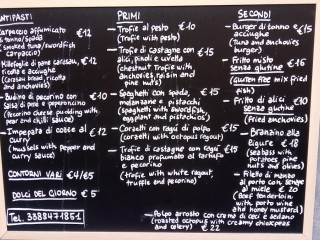 ANTIPASTI
Carpaccio affumicato €12
& tonno/spada
(smoked tuna/swordfish
carpaccio)
Millefoglie di pane carasau,
ricotta e acciughe €12
(Carasau bread, ricotta
and anchovies)
- Budino di pecorino con €10
Salsa di pere e peperoncino
(Pecorino cheese pudding with
pear and chilli sauce)
- Impepata di cozze al €12
curry
(Mussels with pepper and
curry sauce)
CONTORNI VARI €4/65
DOLCI DEL GIORNO € 5
Tel. 3888471851
PRIMI
- Trofie al pesto €10
(Trofie with pesto)
- Trofie di castagne con €15
alici, pinoli e uvetta
(chestnut trofie with
anchovies, raisin and
pine nuts)
- Spaghetti con spada, €15
melanzane e pistacchi
(Spaghetti with swordfish,
eggplant and pistachios)
- Corzetti con ragù di polpo €15
(corzetti with octopus ragout)
- Trofie di castagne con ragù €15
bianco profumato al tartufo
e pecorino
(trofie with white ragout,
truffle and pecorino)
SECONDI
- Burger di tonno e €15
acciughe
(Tuna and anchovies
burger)
- Fritto misto €16
senza glutine
(GLUTEN FREE mixed fried
fish)
- Fritto di alici €10
senza glutine
(Fried anchovies)
- Branzino alla
ligure €18
(seabass with
potatoes pine
nuts and olives)
- Filetto di manzo
al porto con senape
al miele € 20
(Beef tenderloin
with porto wine
and honey mustard)
- Polpo arrosto con crema di ceci e sedano
(roasted octopus with creamy chickpeas
and celery) € 22